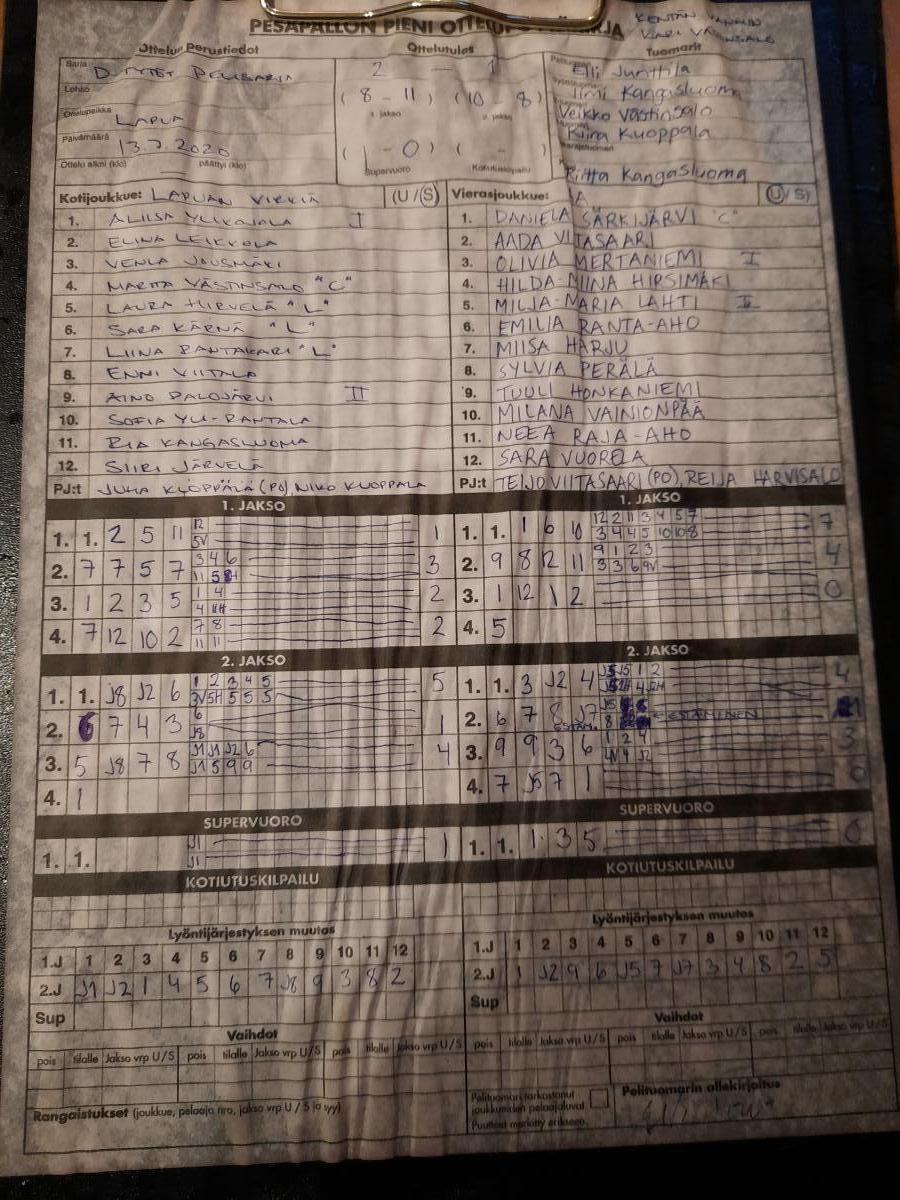 PESÄPALLON PIENI
Ottelun Perustiedot
Ottelutulos
Tuomarit
Sarja
Lohko
Ottelupaikka LAPUA
Päivämäärä 13.7.2020
Ottelu alkoi (klo) päättyi (klo)
2 — 1
(8 - 11) (10 - 8)
1. jakso 2. jakso
(1 - 0) ( - )
Supervuoro Kotiutuskilpailu
Elli Junttila
Jimi Kangasluoma
Veikko Västinsalo
Kiira Kuoppala
Riitta Kangasluoma
Kotijoukkue: LAPUAN VIRKIÄ (U/S)
1. ALIISA YLIKOJOLA I
2. ELINA LEIKKOLA
3. VENLA JOUSMÄKI
4. MARITA VÄSTINSALO "C"
5. LAURA HIRVELÄ "L"
6. SARA KÄRNÄ "L"
7. LIINA RANTAKARI "L"
8. ENNI VIITALA
9. AINO PALOJÄRVI II
10. SOFIA YLI-RANTALA
11. RIA KANGASLUOMA
12. SIIRI JÄRVELÄ
PJ:t JUHA KLÖPPÄLÄ (PO), NIKO KUOPPALA
Vierasjoukkue: (U/S)
1. DANIELA SÄRKIJÄRVI "C"
2. AADA VIITASAARI
3. OLIVIA MERTANIEMI I
4. HILDA-MIINA HIRSIMÄKI
5. MILJA-MARIA LAHTI II
6. EMILIA RANTA-AHO
7. MIISA HARJU
8. SYLVIA PERÄLÄ
9. TUULI HONKANIEMI
10. MILANA VAINIONPÄÄ
11. NEEA RAJA-AHO
12. SARA VUORELA
PJ:t TEIJO VIITASAARI (PO), REIJA HARVISALO
1. JAKSO
1. 1. 2 5 11 12 5V 1
2. 7 7 5 7 3 4 6 11 3
3. 1 2 3 5 1 4 4 2
4. 7 12 10 2 7 8 11 11 2
1. JAKSO
1. 1. 1 6 10 12 2 11 3 4 5 7 7
3 4 4 5 10 10 8
2. 9 8 12 11 9 1 2 3 4
3 3 6 9V
3. 1 12 1 2 0
4. 5
2. JAKSO
1. 1. J8 J2 6 1 2 3 4 5 5
3V 5H 5 5 5
2. 6 7 4 3 6 J8 1
3. 5 J8 7 8 J1 J1 J2 6 4
J1 5 9 9
4. 1
2. JAKSO
1. 1. 3 J2 4 J5 J5 1 2 4
2. 6 7 8 J7 ESTÄMINEN
3. 9 9 3 6 1 2 4 3
4V 9 J2
4. 7 J5 7 1 0
SUPERVUORO
1. 1. J1 J1 1
SUPERVUORO
1. 1. 1 3 5 0
KOTIUTUSKILPAILU
KOTIUTUSKILPAILU
Lyöntijärjestyksen muutos
1.J 1 2 3 4 5 6 7 8 9 10 11 12
2.J J1 J2 1 4 5 6 7 J8 9 3 8 2
Sup
Lyöntijärjestyksen muutos
1.J 1 2 3 4 5 6 7 8 9 10 11 12
2.J 1 J2 9 6 J5 7 J7 3 4 8 2 5
Sup
Vaihdot
pois tilalle Jakso vrp U/S pois tilalle Jakso vrp U/S pois tilalle Jakso vrp U/S
Vaihdot
pois tilalle Jakso vrp U/S pois tilalle Jakso vrp U/S pois tilalle Jakso vrp U/S
Rangaistukset (joukkue, pelaaja nro, jakso vrp U / S ja syy)
Pelituomari tarkastanut
joukkueiden pelaajaluvat
Puutteet merkitty erikseen.
Pelituomarin allekirjoitus